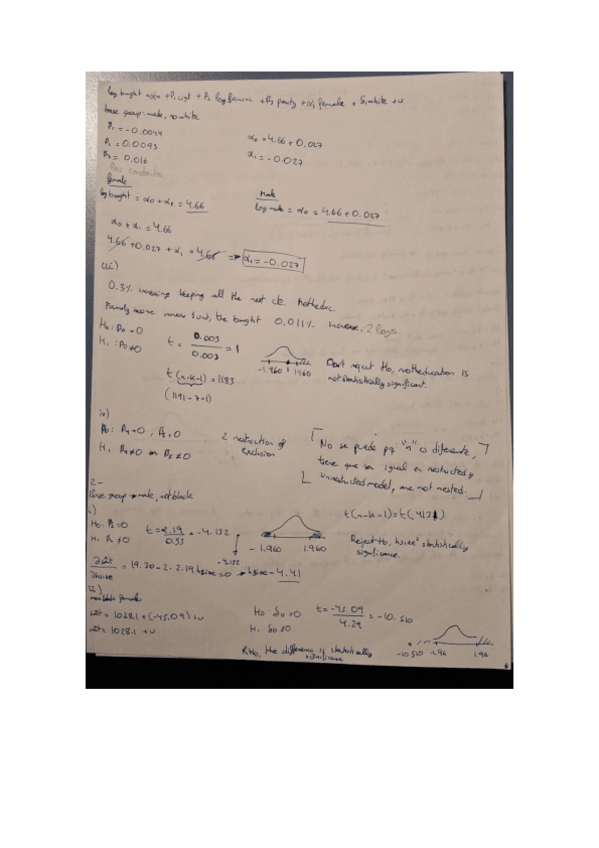 log bwght = α0 + β1 cigt + β2 log faminc + β3 parity + α1 female + δ1 white + u
base group: male, no white
β1 = -0.0044
β2 = 0.0093
β3 = 0.016
α0 = 4.66 + 0.027
α1 = -0.027
las constantes
female
log bwght = α0 + α1 = 4.66
Male
log male = α0 = 4.66 + 0.027
α0 + α1 = 4.66
4.66 + 0.027 + α1 = 4.66 → α1 = -0.027
iii)
0.3% increasing keeping all the rest cte. Motheduc.
Family income 1 unit, the bwght 0.011% increase. 2 logs
H0: β0 = 0
H1: β0 ≠ 0
t = 0.003 / 0.003 = 1
-1.960 1 1960
Don't reject H0, motheducation is
not statistically significant.
t (n-k-1) = 1183
(1191 - 7 - 1)
iv)
H0: β4 = 0, β5 = 0
H1 β4 ≠ 0 or β5 ≠ 0
2 restriction of
exclusion
No se puede pq "n" es diferente,
tiene que ser igual en restricted y
unrestricted model, are not nested.
2-
Base group → male, not black
i)
H0: β2 = 0
H1 β2 ≠ 0
t = 2.19 / 0.53 = -4.132
-4.132
-1.960 1.960
t(n-k-1) = t(4131)
Reject H0, hsize² statistically
significance.
∂sat / ∂hsize = 19.30 - 2·2.19 hsize = 0 → hsize = 4.41
ii)
nonblack female
sat = 1028.1 + (-45.09) + u
sat = 1028.1 + u
H0: δ0 = 0
H1 δ0 ≠ 0
t = -45.09 / 4.29 = -10.510
-10.510 -1.96 1.96
RH0, the difference is statistically
significance